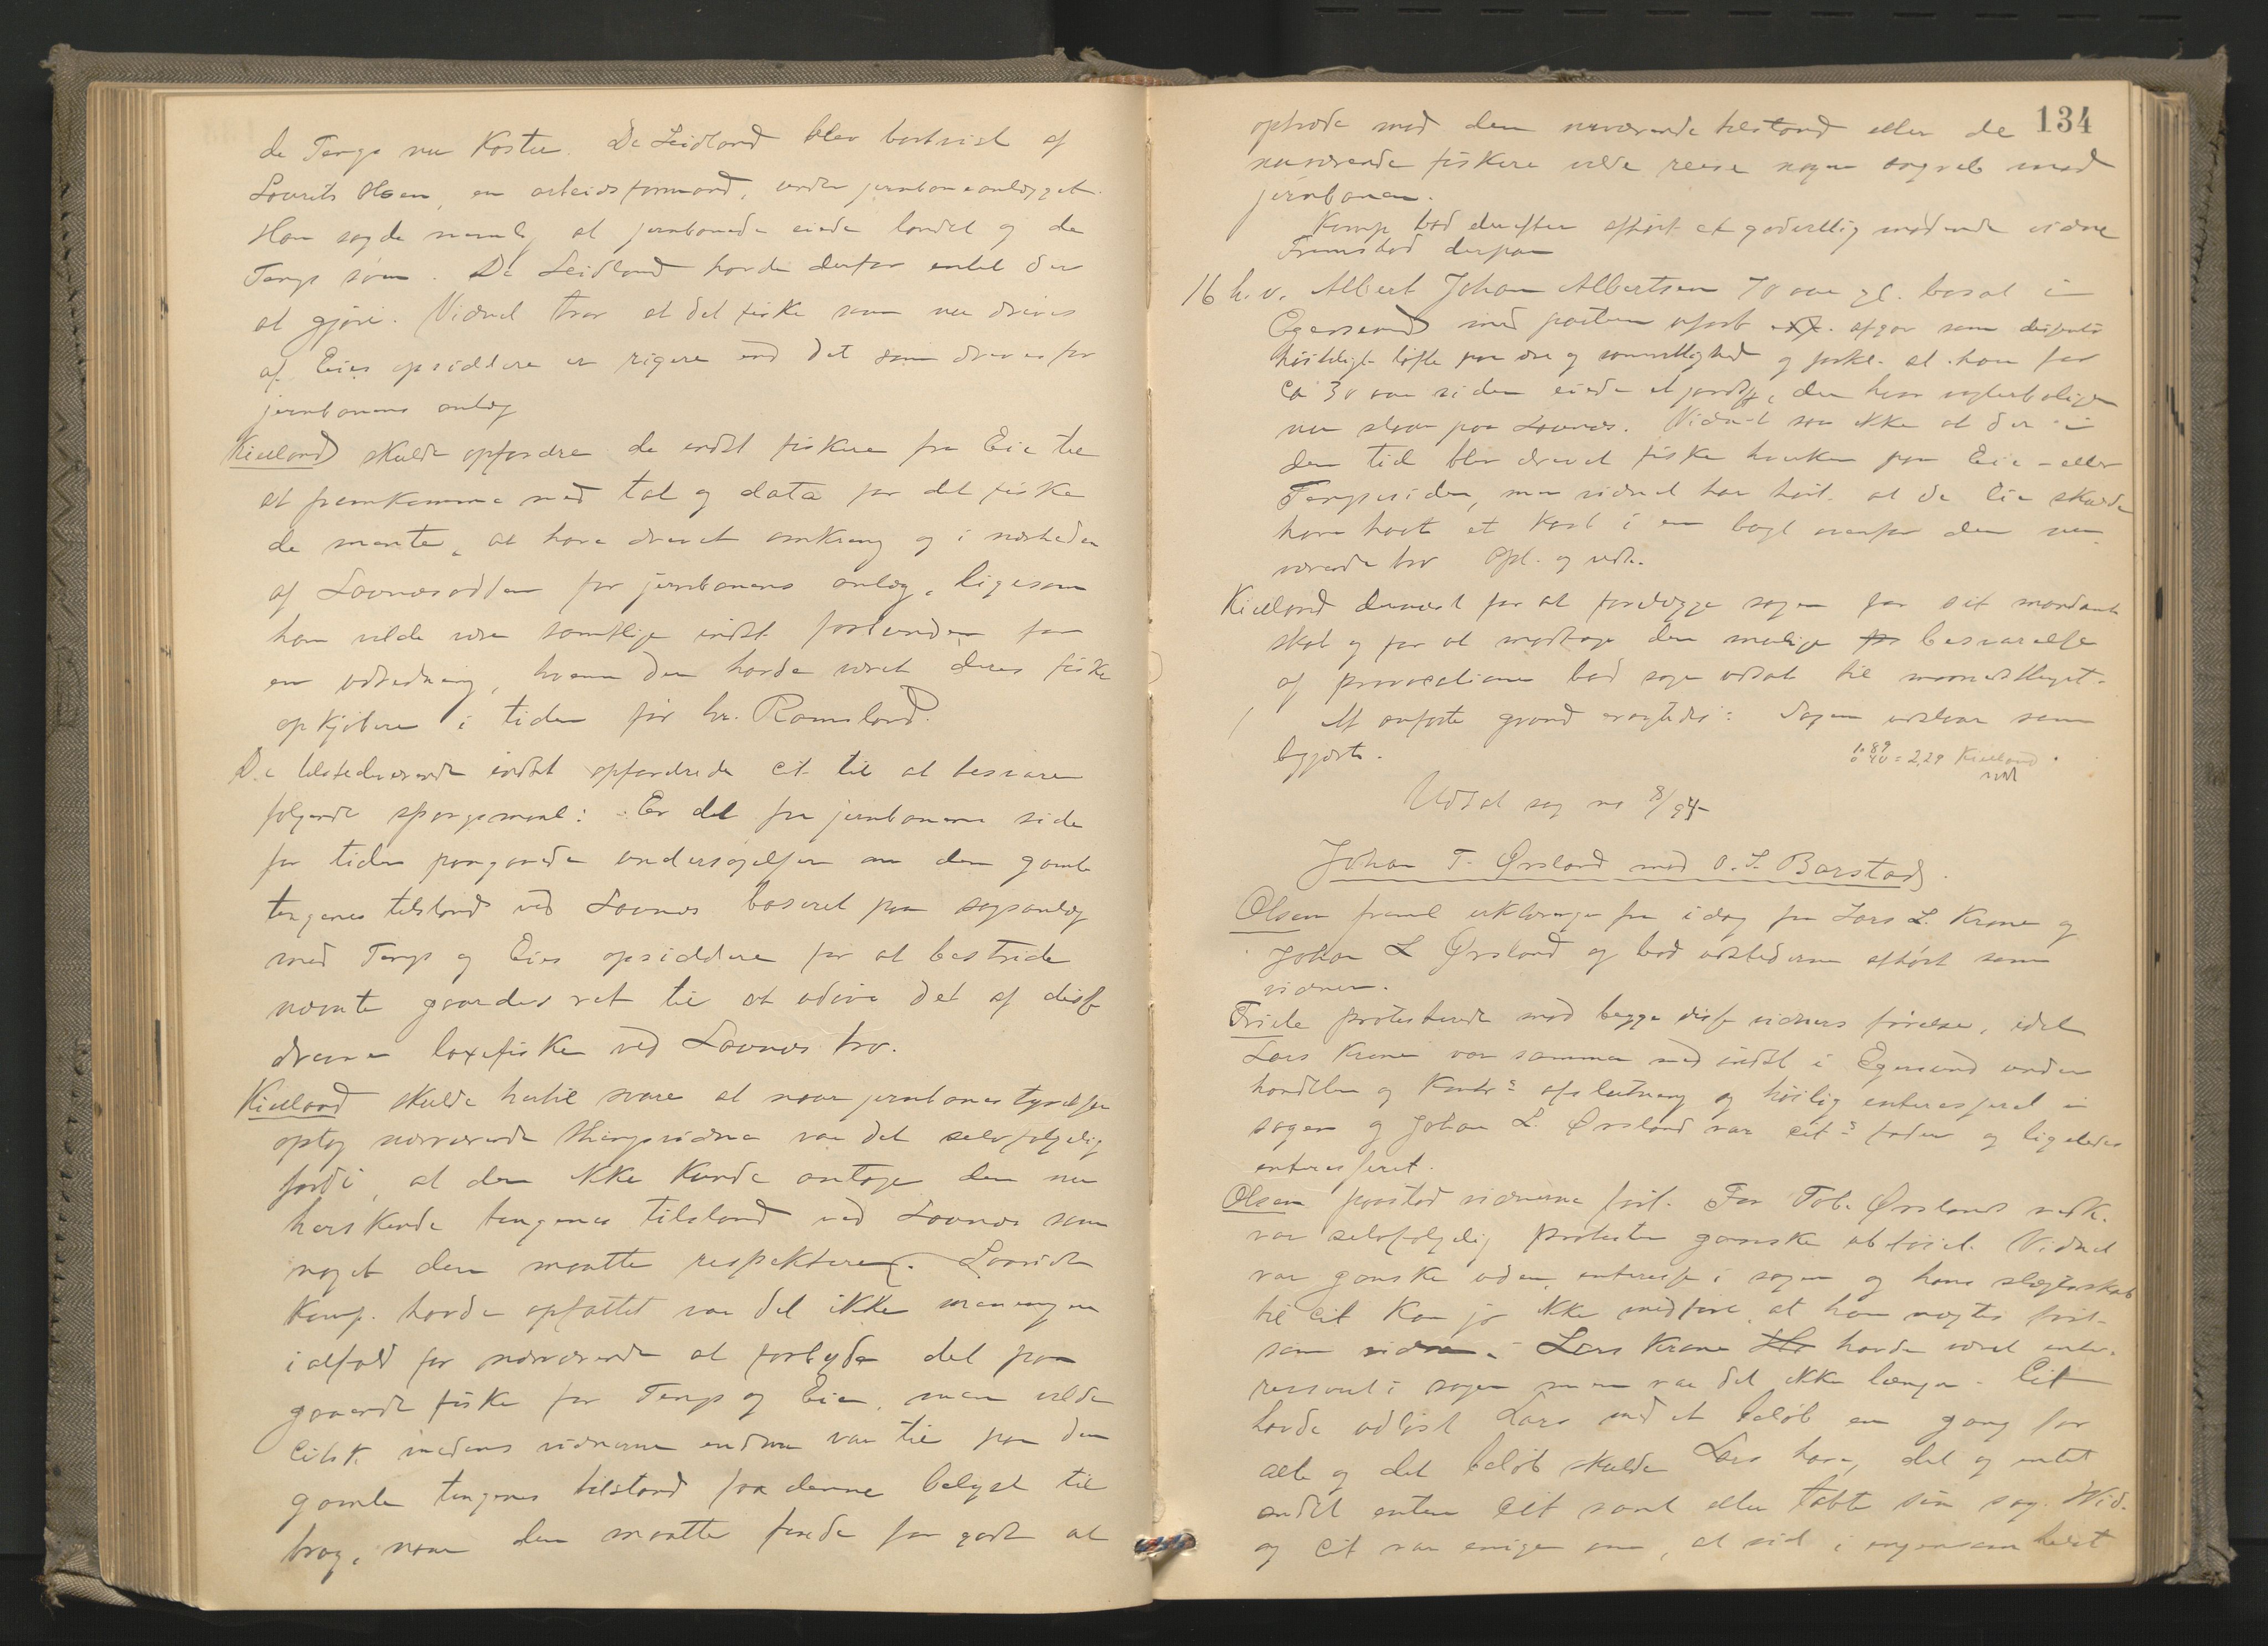 de Tengs nu koster. De Leidland blev bortvist af
Lourits Olsen, en arbeidsformand, under jernbaneanlægget.
Han sagde nemlig at jernbanen eiede landet og de
Tengs søen. De Leidland havde derfor intet der
at gjøre. Vidnet tror at det fiske som nu drives
af Eies opsiddere er rigere end det som dreves før
jernbanens anlæg
Kielland skulde opfordre de indst fiskere fra Eie til
at fremkomme med tal og data for det fiske
de mente, at have drevet omkring og i nærheden
af Lovnæsodden før jernbanens anlæg, ligesom
han vilde være samtlige indst forbunden for
en udredning, hvem der havde været deres fiske
opkjøbere i tiden før hr. Ramsland.
De tilstedeværende indst opfordrede cit. til at besvare
følgende spørgsmaal: Er det fra jernbanens side
for tiden paagaaende undersøgelser om den gamle
tingenes tilstand ved Lovnæs baseret paa sagsanlæg
mod Tengs og Eies opsiddere for at bestride
nævnte gaardes ret til at udøve det af disse
drevne laxefiske ved Lovnæs bro.
Kielland skulde hertil svare at naar jernbanestyrelsen
optog nærværende thingsvidne var det selvfølgelig
fordi, at den ikke kunde antage den nu
herskende tingenes tilstand ved Lovnæs som
noget den maatte respektere. Saavidt
komp. havde opfattet var det ikke meningen
ialfald for nærværende at forbyde det paa
gaaende fiske for Tengs og Eie, men vilde
citst. medens vidnerne endnu var til paa den
gamle tingenes tilstand faa denne belyst til
brug, naar den maatte finde for godt at
134
optræde mod den nuværende tilstand eller de
nuværende fiskere vilde reise nogen sag mod
jernbanen.
Komp. bad derefter afhørt et godvillig mødende vidne
Fremstod derpaa
16 h.v. Albert Johan Albertsen 70 aar gl. bosat i
Egersund med partern afgav som dissenter
høitideligt løfte paa ære og samvittighed og forkl. at han for
ca 30 aar siden eiede et jordst, der hvor vogterboligen
nu staar paa Lovnæs. Vidnet saa ikke at der i
den tid blev drevet fiske hverken paa Eie- eller
Tengssiden, men vidnet har hørt at de Eie skulde
have havt et kast i en bugt ovenfor den nu
værende bro Opl. og vedt.
Kielland dernæst for at forelægge sagen for sit mandant
skab og for at modtage den mulige besvarelse
af provocationen bad sagen udsat til maanedsthinget.
Af anførte grund eragtedes: Sagen udstaar som
begjært.
1.89
0 40 = 2,29 Kielland

Udsat sag no 8/94
Johan T. Ørsland mod O. T. Barstad.
Olsen freml erklæringer fra idag fra Lars L. Krone og
Johan L Ørsland og bad udstederne afhørt som
vidner.
Friele protesterede mod begge disse vidners førelse, idet
Lars Krone var sammen med indst i Egersund under
handelen og kontr:s afslutning og høilig interesseret i
sagen og Johan L. Ørsland var cit:s fader og ligeledes
interesseret.
Olsen paastod vidnerne ført. For Tob. Ørslands vedk.
var selvfølgelig protesten ganske ubføiet. Vidnet
var ganske uden interesse i sagen og hans slægtsskab
til cit kan jo ikke medføre, at han nægtes ført
som vidne. Lars Krone havde været inte-
resseret i sagen men var det ikke længer. Cit
havde udløst Lars med et beløb en gang for
alle og det beløb skulde Lars have, det og intet
andet enten Cit vandt eller tabte sin sag. Vid.
og Cit var enige om, at vid i ingensom helst